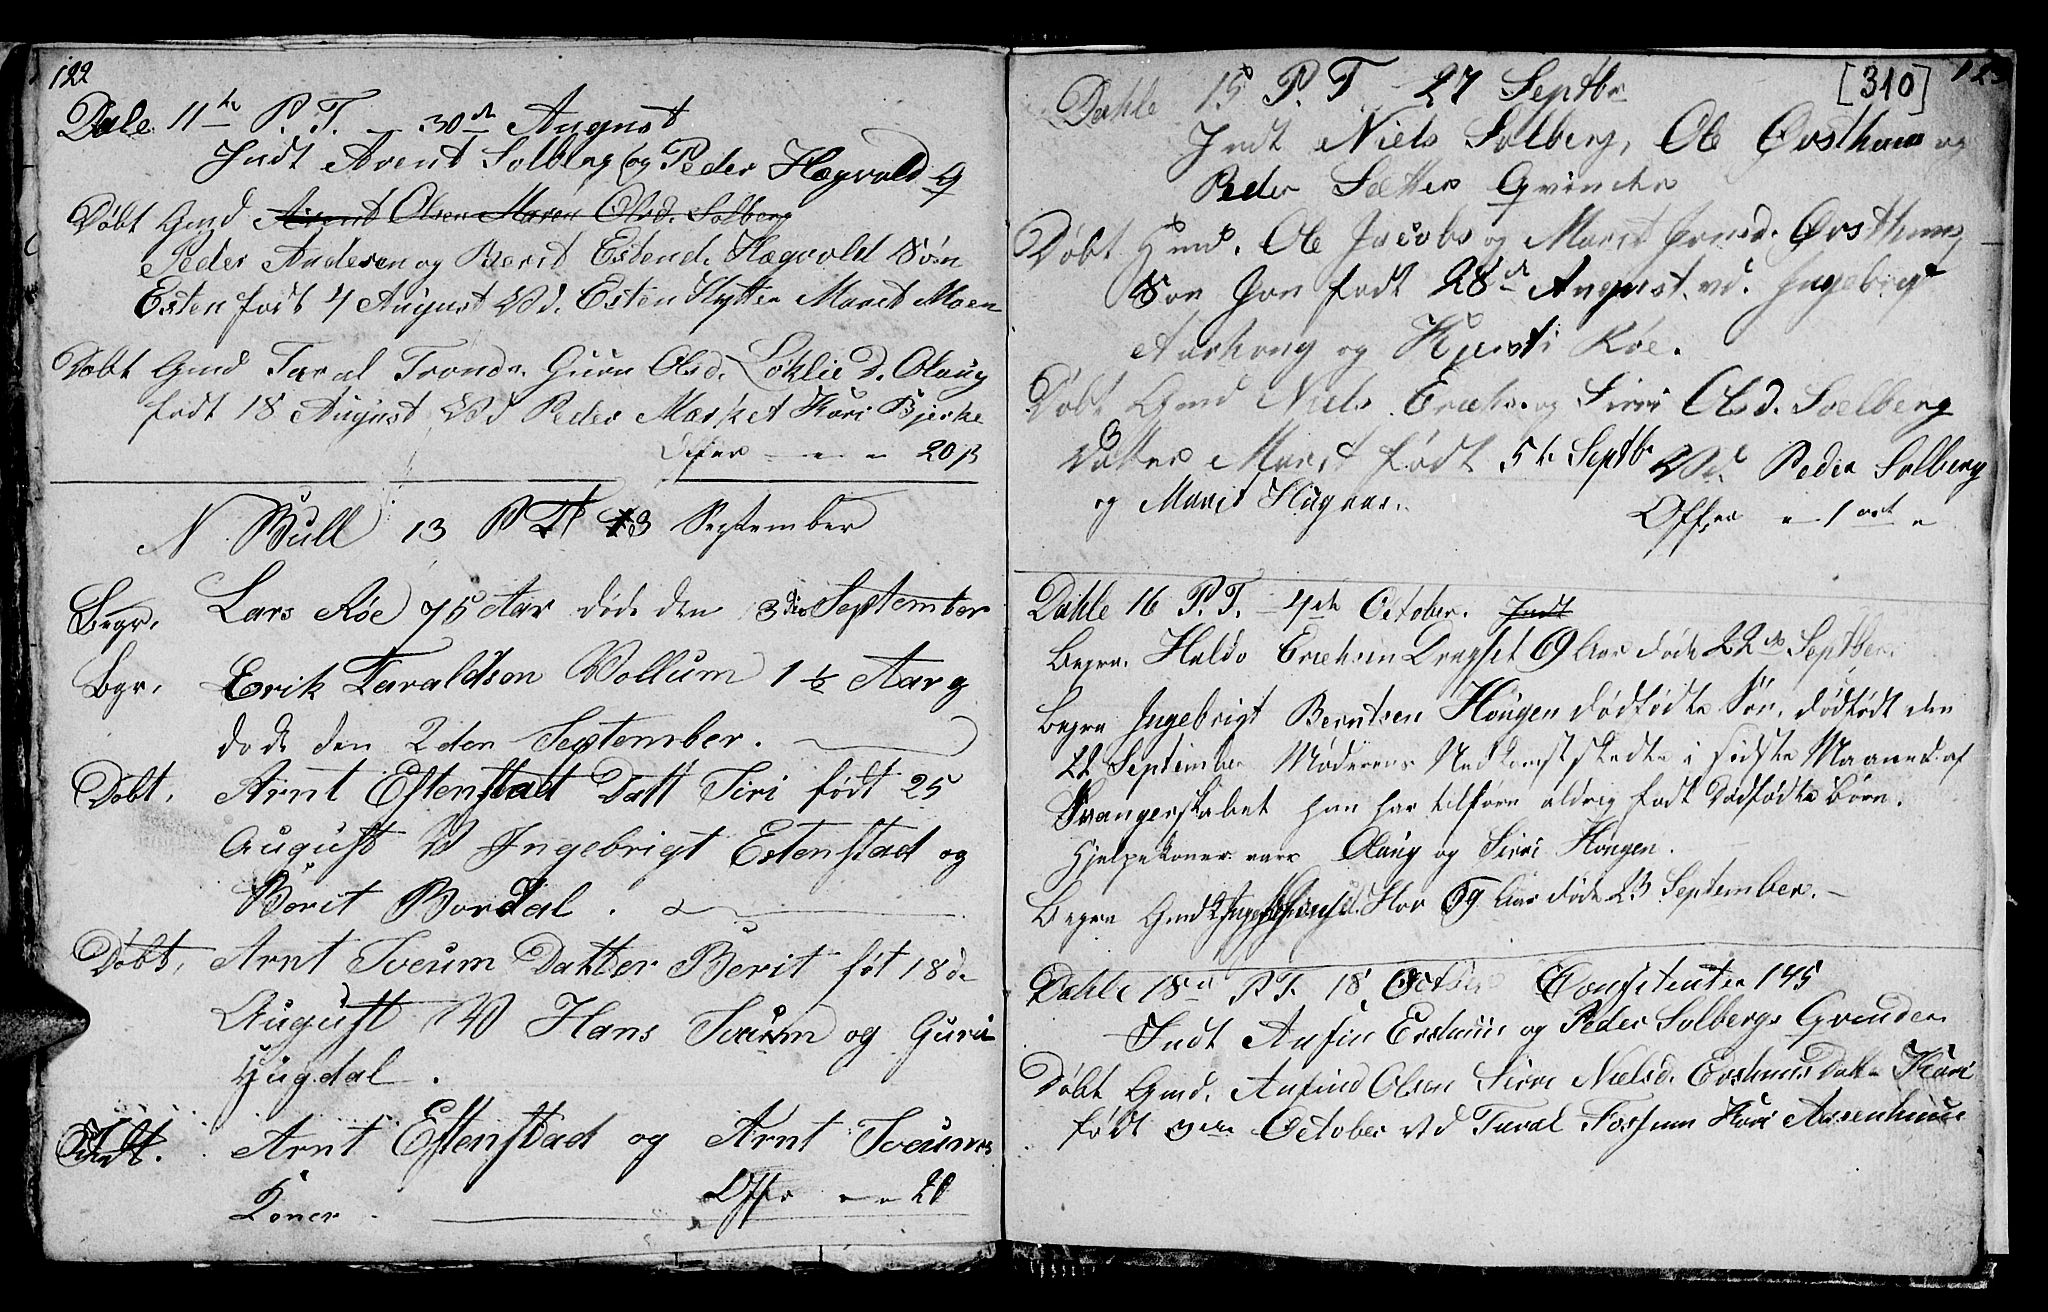 122
Dale 11te P. T. – 30te August
Indt Arent Solberg og Peder Hægvold Q
Døbt Gmd Arent Olsen Maren Olsd. Solberg
Peder Andersen og Berit Estend. Hægvold Søn
Esten født 4 August Vd. Esten Hytten Marit Moen
Døbt Gmd Taral Tronds. Guru Olsd. Loklie D. Olaug
født 18 August Vd Peder Market Kari Bjerke
Offer – – – 20 β
N Bull 13 P T 13 September
Begr. Lars Röe 75 Aar døde den 3die September
Bgr. Erik Taraldson Vollum 1 ½ Aar g
døde den 2den September.
Døbt, Arnt Estenstad Datt Siri født 25
August V Ingebrigt Estenstad og
Berit Bordal.
Døbt, Arnt Sveum Datter Berit føt 18 de
August V Hans Sveum og Guru
Hugdal.
Indt. Arnt Estenstad og Arnt Sveums
Koner.
Offer – – 20
[310] 123
Dahle 15 P. T – 27 Septbr
Indt Niels Solberg, Ole Østhuus og
Peder Sætter Qvinder
Døbt Gmd. Ole Jacobs og Marit Jonsd. Østhuus
Søn Jon født 28de August. vd. Ingebrigt
Aashoug og Kjersti Röe.
Døbt Gmd Niels Erichs. og Sirri Olsd. Soelberg
Datter Marit født 5te Septbr Vd. Peder Solberg
og Marit Hagaas.
Offer – 1 ort –
Dahle 16 P. T. – 4de October. Indt
Begra. Haldo Erichsen Dragset 69 Aar døde 22de Septber.
Begra Ingebrigt Berntsen Hougen dødfødte Søn, dødfødt den
22 September Moderens Nedkomst skedte i sidste Maaned af
Svangerskabet hun har tilforn aldrig født dødfødte Børn.
Hjelpekoner vare Olaug og Sirri Hougen.
Begra Gmdk Hov 69 Aar døde 23 September. –
Dahle 18de P T. 18 Octber Confitenter 145
Indt Anfin Ershuus og Peder Solbergs Qvinder
Døbt Gmd. Anfind Olsen Sirri Nielsd. Ershuus Datter Kari
født October Vd Taral Fossum Kari Aasenhuus